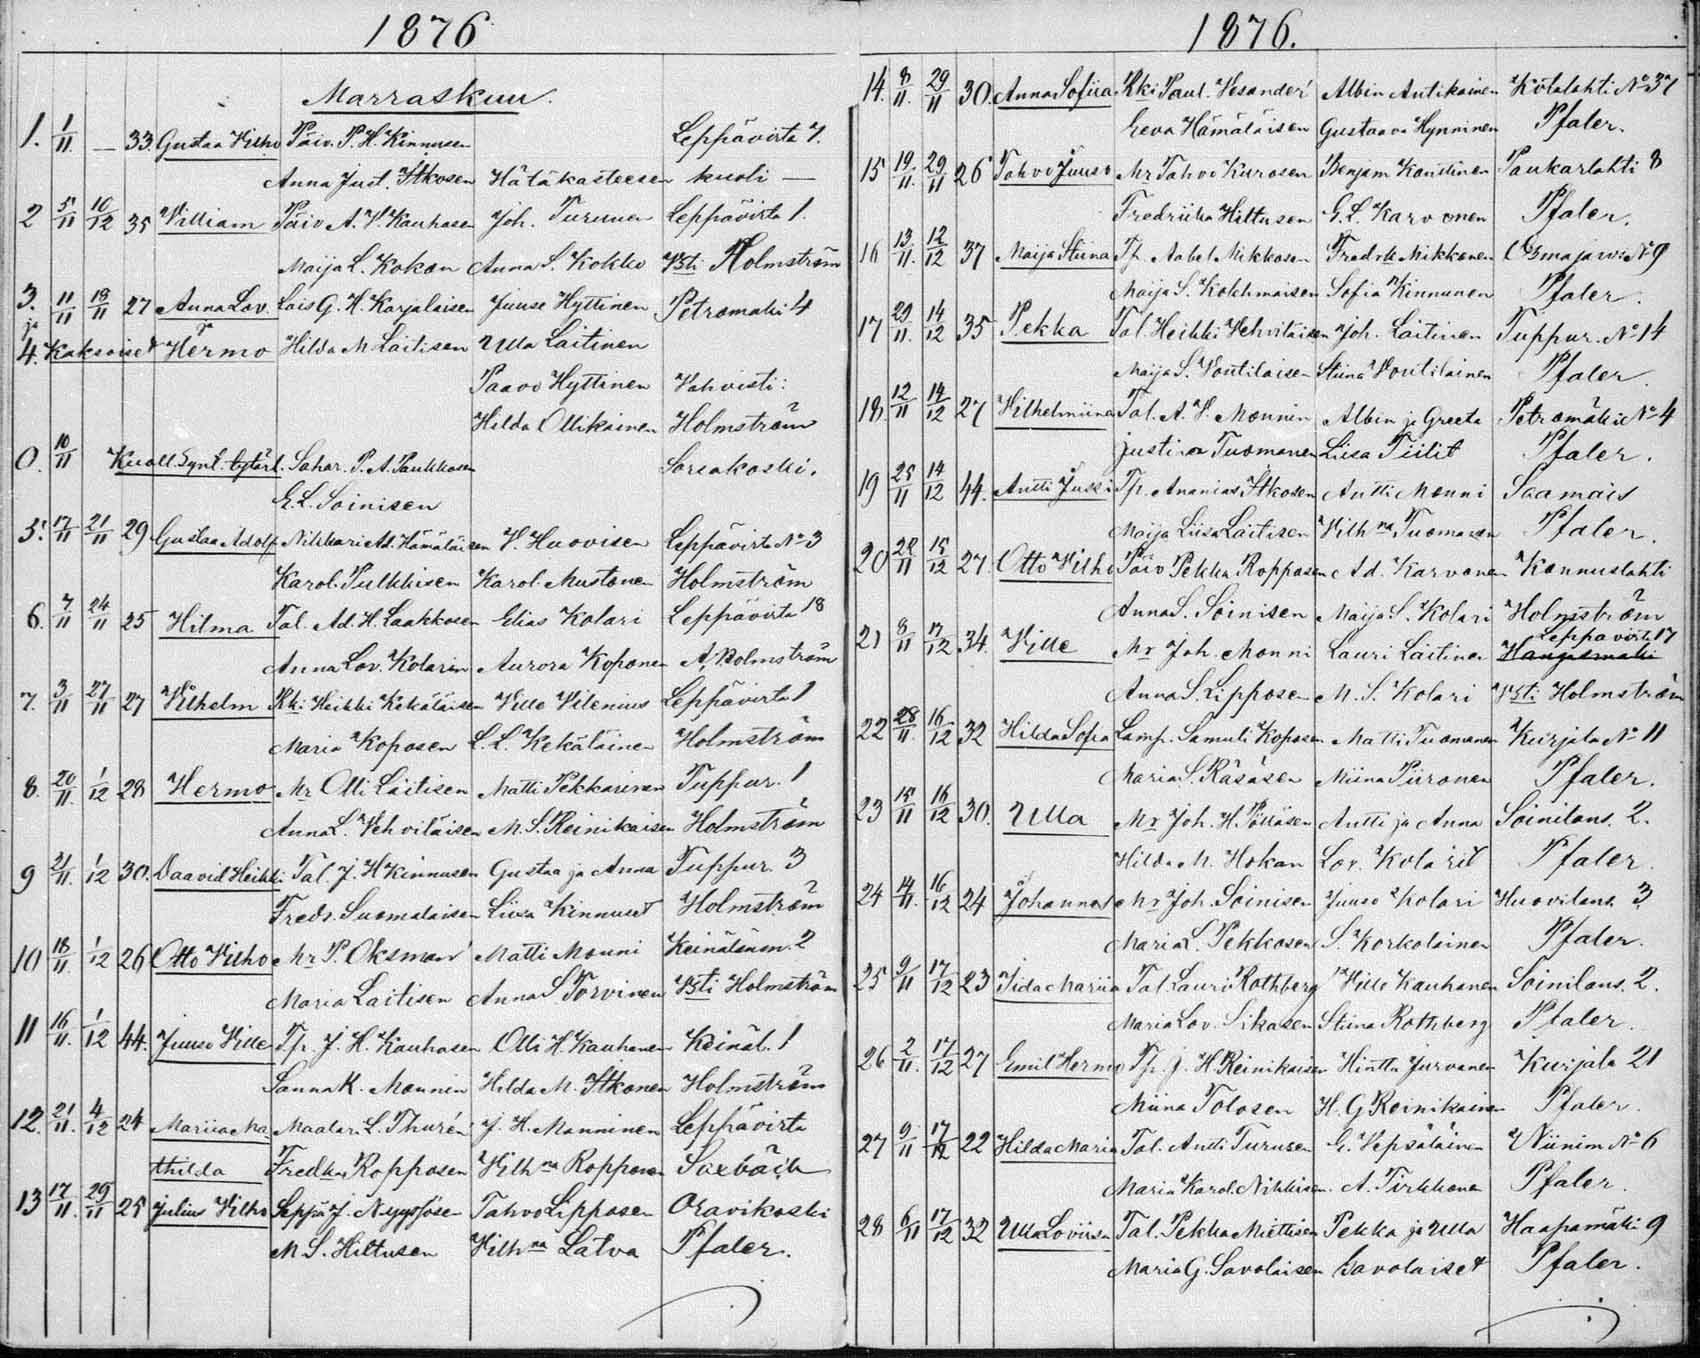 1876
Marraskuu.
1. 1/11 — 33. Gustaa Vilho Päiv. P. H. Kinnusen Leppävirta 7.
Anna Just. Itkosen Hätäkasteesen kuoli —
2 5/11 10/12 35 William Päiv A. V. Kauhasen Joh. Turunen Leppävirta 1.
Maija L. Kokon Anna S. Kokko Vsti Holmström
3. 11/11 18/11 27 Anna Lov. Lois G. H. Karjalaisen Juuse Hyttinen Petromäki 4
ja
4. Kaksoiset ja Hermo Hilda M Laitisen Ulla Laitinen
Paavo Hyttinen Vahvisti:
Hilda Ollikainen Holmström
0. 10/11 Kuoll. Synt. tytärl. Sahar. P. A. Paukkosen Sorsakoski.
E. L. Soinisen
5. 17/11 21/11 29 Gustaa Adolf Nikkari Ad. Hämäläisen V. Huovisen Leppävirta No 3
Karol. Pulkkisen Karol. Mustonen Holmström
6. 7/11 24/11 25 Hilma Tal. Ad. H. Laakkosen Elias Kolari Leppävirta 18
Anna Lov. Kolarin Aurora Koponen A. Holmström
7. 3/11 27/11 27 Vilhelm Rki Heikki Kekäläisen Ville Vilenius Leppävirta 1
Maria Koposen L. L. Kekäläinen Holmström
8. 20/11 1/12 28 Hermo Mr Olli Laitisen Matti Pekkarinen Tuppur. 1
Anna L. Vehviläisen M. S. Reinikaisen Holmström
9 21/11 1/12 30. Daavid Heikki Tal. J. H Kinnusen Gustaa ja Anna Tuppur. 3
Fredr. Suomalaisen Liisa Kinnuset Holmström
10 18/11 1/12 26 Otto Vilho Mr P. Oksman Matti Monni Keinälänm. 2
Maria Laitisen Anna S Torvinen Vsti Holmström
11 16/11 1/12 44. Juuso Ville Tp. J. H. Kauhasen Olli H. Kauhanen Keinäl. 1
Sanna K. Monnin Hilda M. Itkonen Holmström
12. 21/11 4/12 24 Mariia Ma- Maalar. L. Thurén J. H. Manninen Leppävirta
thilda Fredka Ropposen Vilhna Ropponen Saxbäck
13 17/11 29/11 25 Julius Vilho Seppä J. Nyyssösen Tahvo Lipposen Oravikoski
M. S. Hiltusen Vilhna Latva Pfaler.
1876.
14. 8/11 29/11 30. Anna Sofiia Rki Paul. Vesander Albin Antikainen Kotalahti No 37
Eeva Hämäläisen Gustaava Hynninen Pfaler.
15 19/11 29/11 26 Tahvo Juuso Mr Tahvo Kurosen Benjam Konttinen Paukarlahti 8
Fredriika Hiltusen G. L. Karvonen Pfaler.
16 13/11 12/12 37 Maija Stiina Tp. Aabel Mikkosen Fredrk Mikkonen Osmajärvi No 9
Maija S. Kolehmaisen Sofia Kinnunen Pfaler.
17 29/11 14/12 35 Pekka Tal. Heikki Vehviläisen Joh. Laitinen Tuppur. No 14
Maija S. Voutilaisen Stiina Voutilainen Pfaler.
18. 12/11 14/12 27 Vilhelmiina Tal. A. V. Monnin Albin ja Greeta Petromäki No 4
Justina Tuomanen Liisa Tiilit Pfaler.
19 25/11 14/12 44. Antti Jussi Tp. Ananias Itkosen Antti Monni Saamais
Maija Liisa Laitisen Vilhna Tuomanen Pfaler.
20 28/11 15/12 27. Otto Vilho Päiv Pekka Ropposen Ad. Karvonen Konnuslahti
Anna S. Soinisen Maija S. Kolari Holmström
21 8/11 17/12 34. Ville Mr Joh. Monni Lauri Laitinen Leppävirta 17
Anna S. Lipposen M. S. Kolari Vsti Holmström
22 28/11 16/12 32 Hilda Sofia Lamp. Samuli Koposen Matti Tuomanen Kurjala No 11
Maria S. Räsäsen Miina Piironen Pfaler.
23 15/11 16/12 30. Ulla Mr Joh. H. Pöllösen Antti ja Anna Soinilans. 2.
Hilda M. Hokan Lov. Kolarit Pfaler.
24 14/11. 16/12 24 Johannes Mr Joh. Soinisen Juuso Kolari Huovilans. 3.
Maria L. Pekkosen S. Korkolainen Pfaler.
25 9/11 17/12 23 Iida Mariia Tal Lauri Rothberg Ville Kauhanen Soinilans. 2.
Maria Lov. Sikasen Stiina Rothberg Pfaler.
26 2/11. 17/12 27 Emil Hermo Tp. J. H. Reinikaisen Hintta Jurvanen Kurjala 21
Miina Tolosen H. G. Reinikainen Pfaler.
27 9/11 17/12 22 Hilda Maria Tal. Antti Turusen G. Vepsäläinen Niinim No 6
Maria Karol. Nikkisen. A. Tirkkonen Pfaler.
28 6/11 17/12 32 Ulla Loviisa Tal. Pekka Miettisen Pekka ja Ulla Haapamäki 9
Maria G. Savolaisen Savolaiset Pfaler.